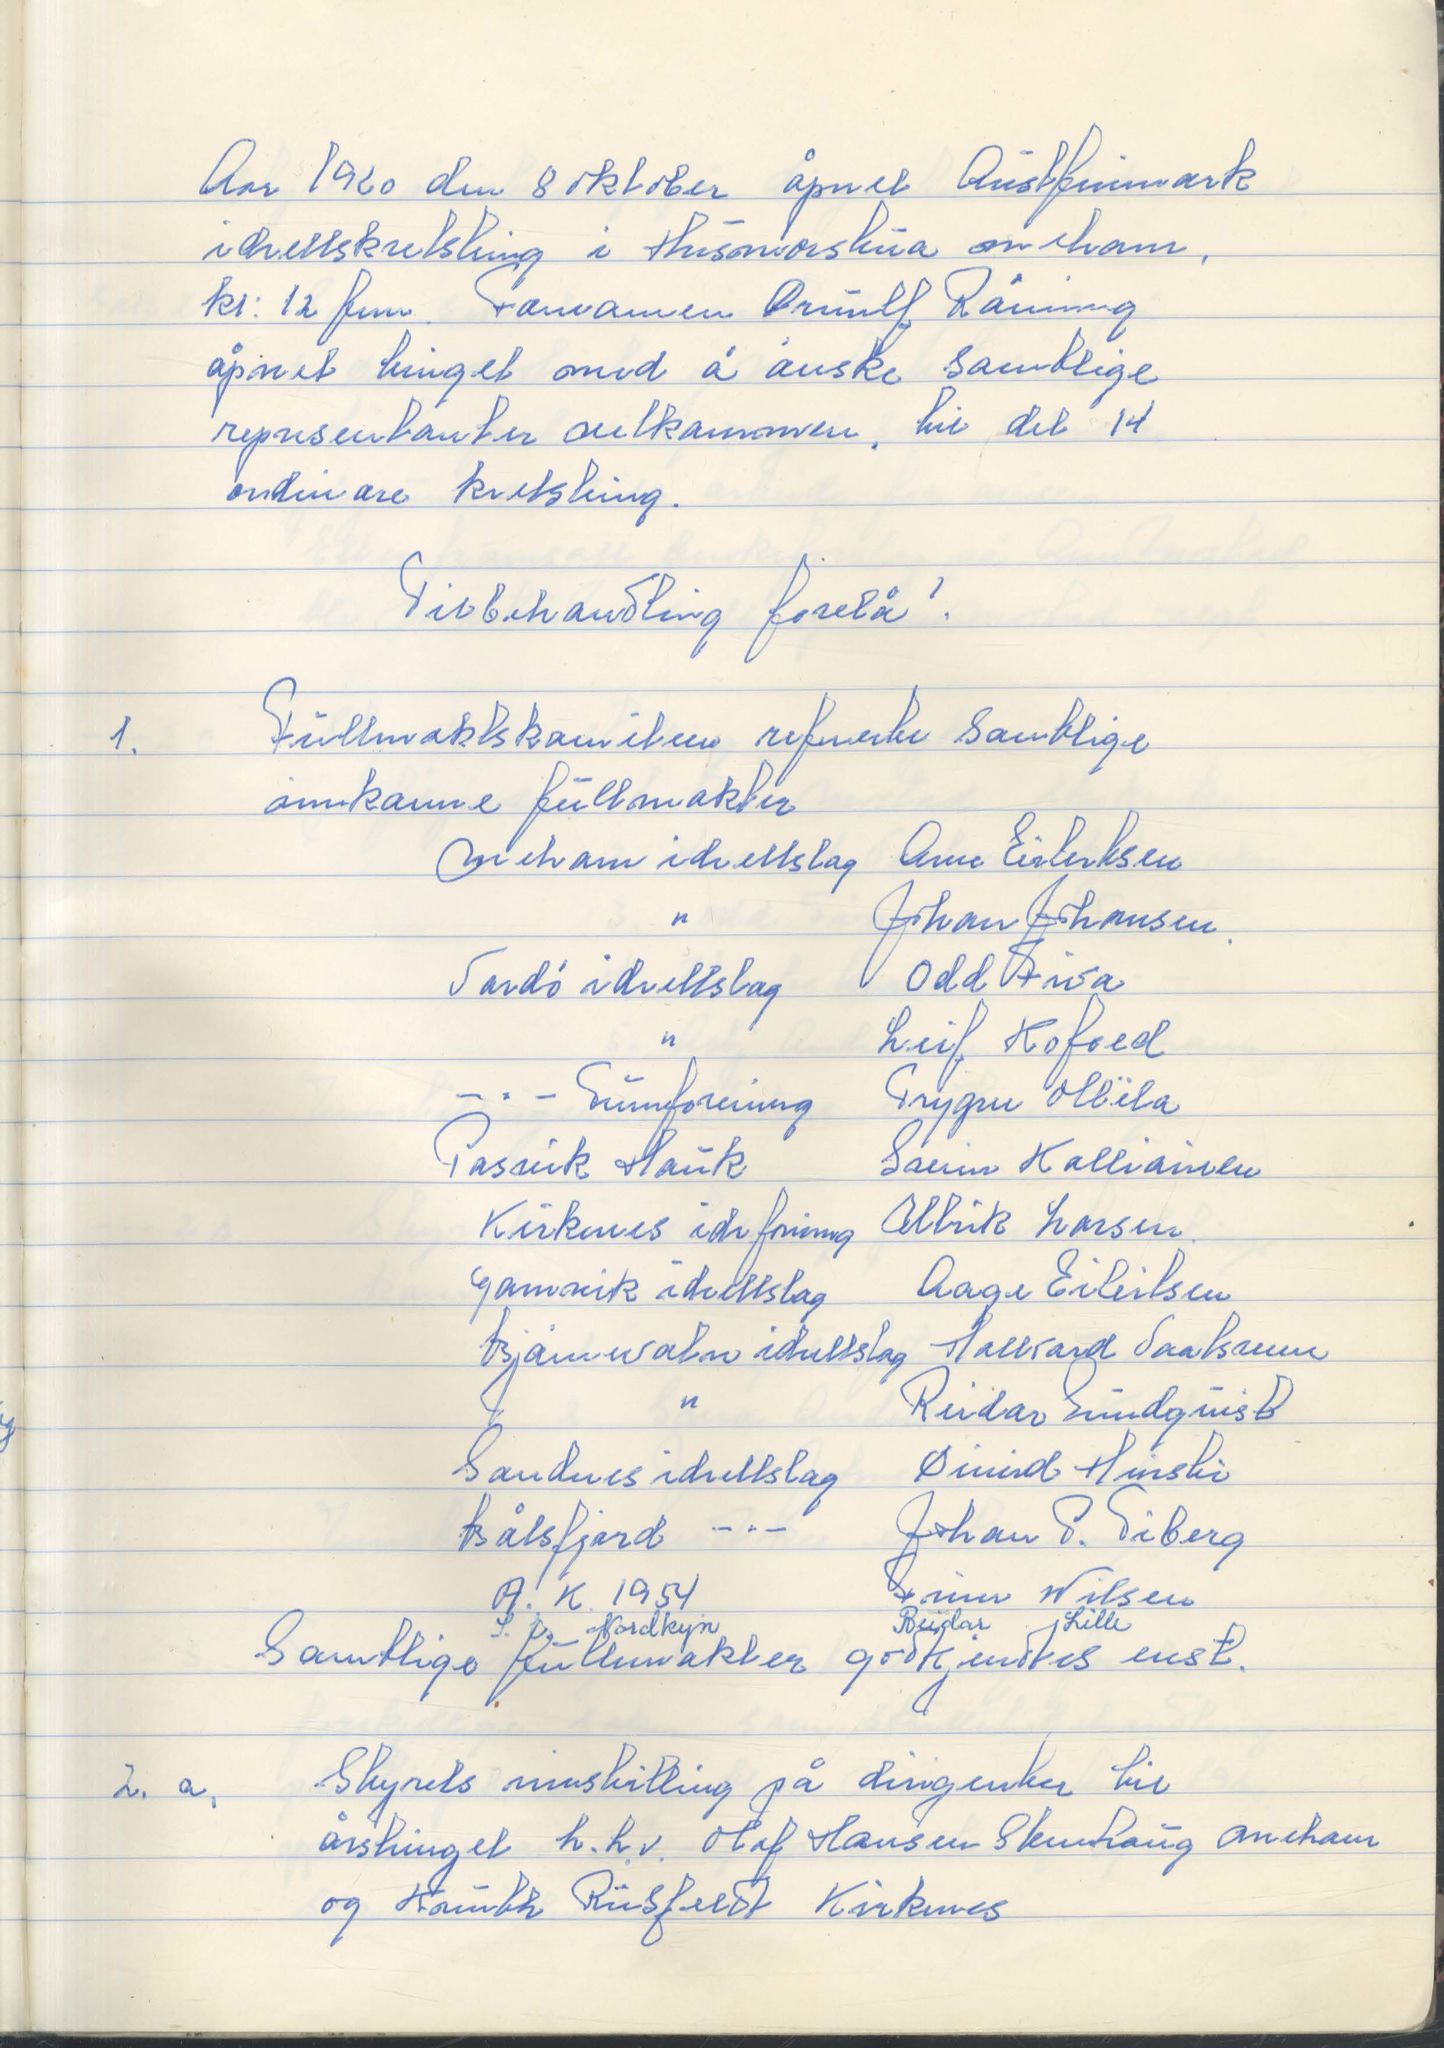 Aar 1960 den 8 oktober åpnet Austfinnmark
idrettskretsting i Husmorstua Mehamn,
kl: 12 fm. Formannen Ørnulf Råning
åpnet tinget med å ønske samtlige
representanter velkommen, til det 14
ordinære kretsting.
Til behandling forelå:
1. Fullmaktskomiteen referete samtlige
innkomne fullmakter
Mehamn idrettslag Arne Eilertsen
" Johan Johansen.
Vardö idrettslag Odd Fiva
" Leif Kofoed
— " — Turnforening Trygve Olbila
Pasvik Hauk Svein Kalliainen
Kirkenes idr forening Albrik Larsen.
Gamvik idrettslag Aage Eilertsen
Bjørnevatn idrettslag Hallvard
" Reidar Sundquist
Sandnes idrettslag Øivind
Båtsfjord — " — Johan P. Siberg
A. K. 1954 Finn Wilsen
S. L. Nordkyn Reidar Lille
Samtlige fullmakter godkjentes enst.
2. a. Styrets innstilling på dirigenter til
årstinget h.h.v. Olaf Hansen Stenhaug Mehamn
og Rusfeldt Kirkenes